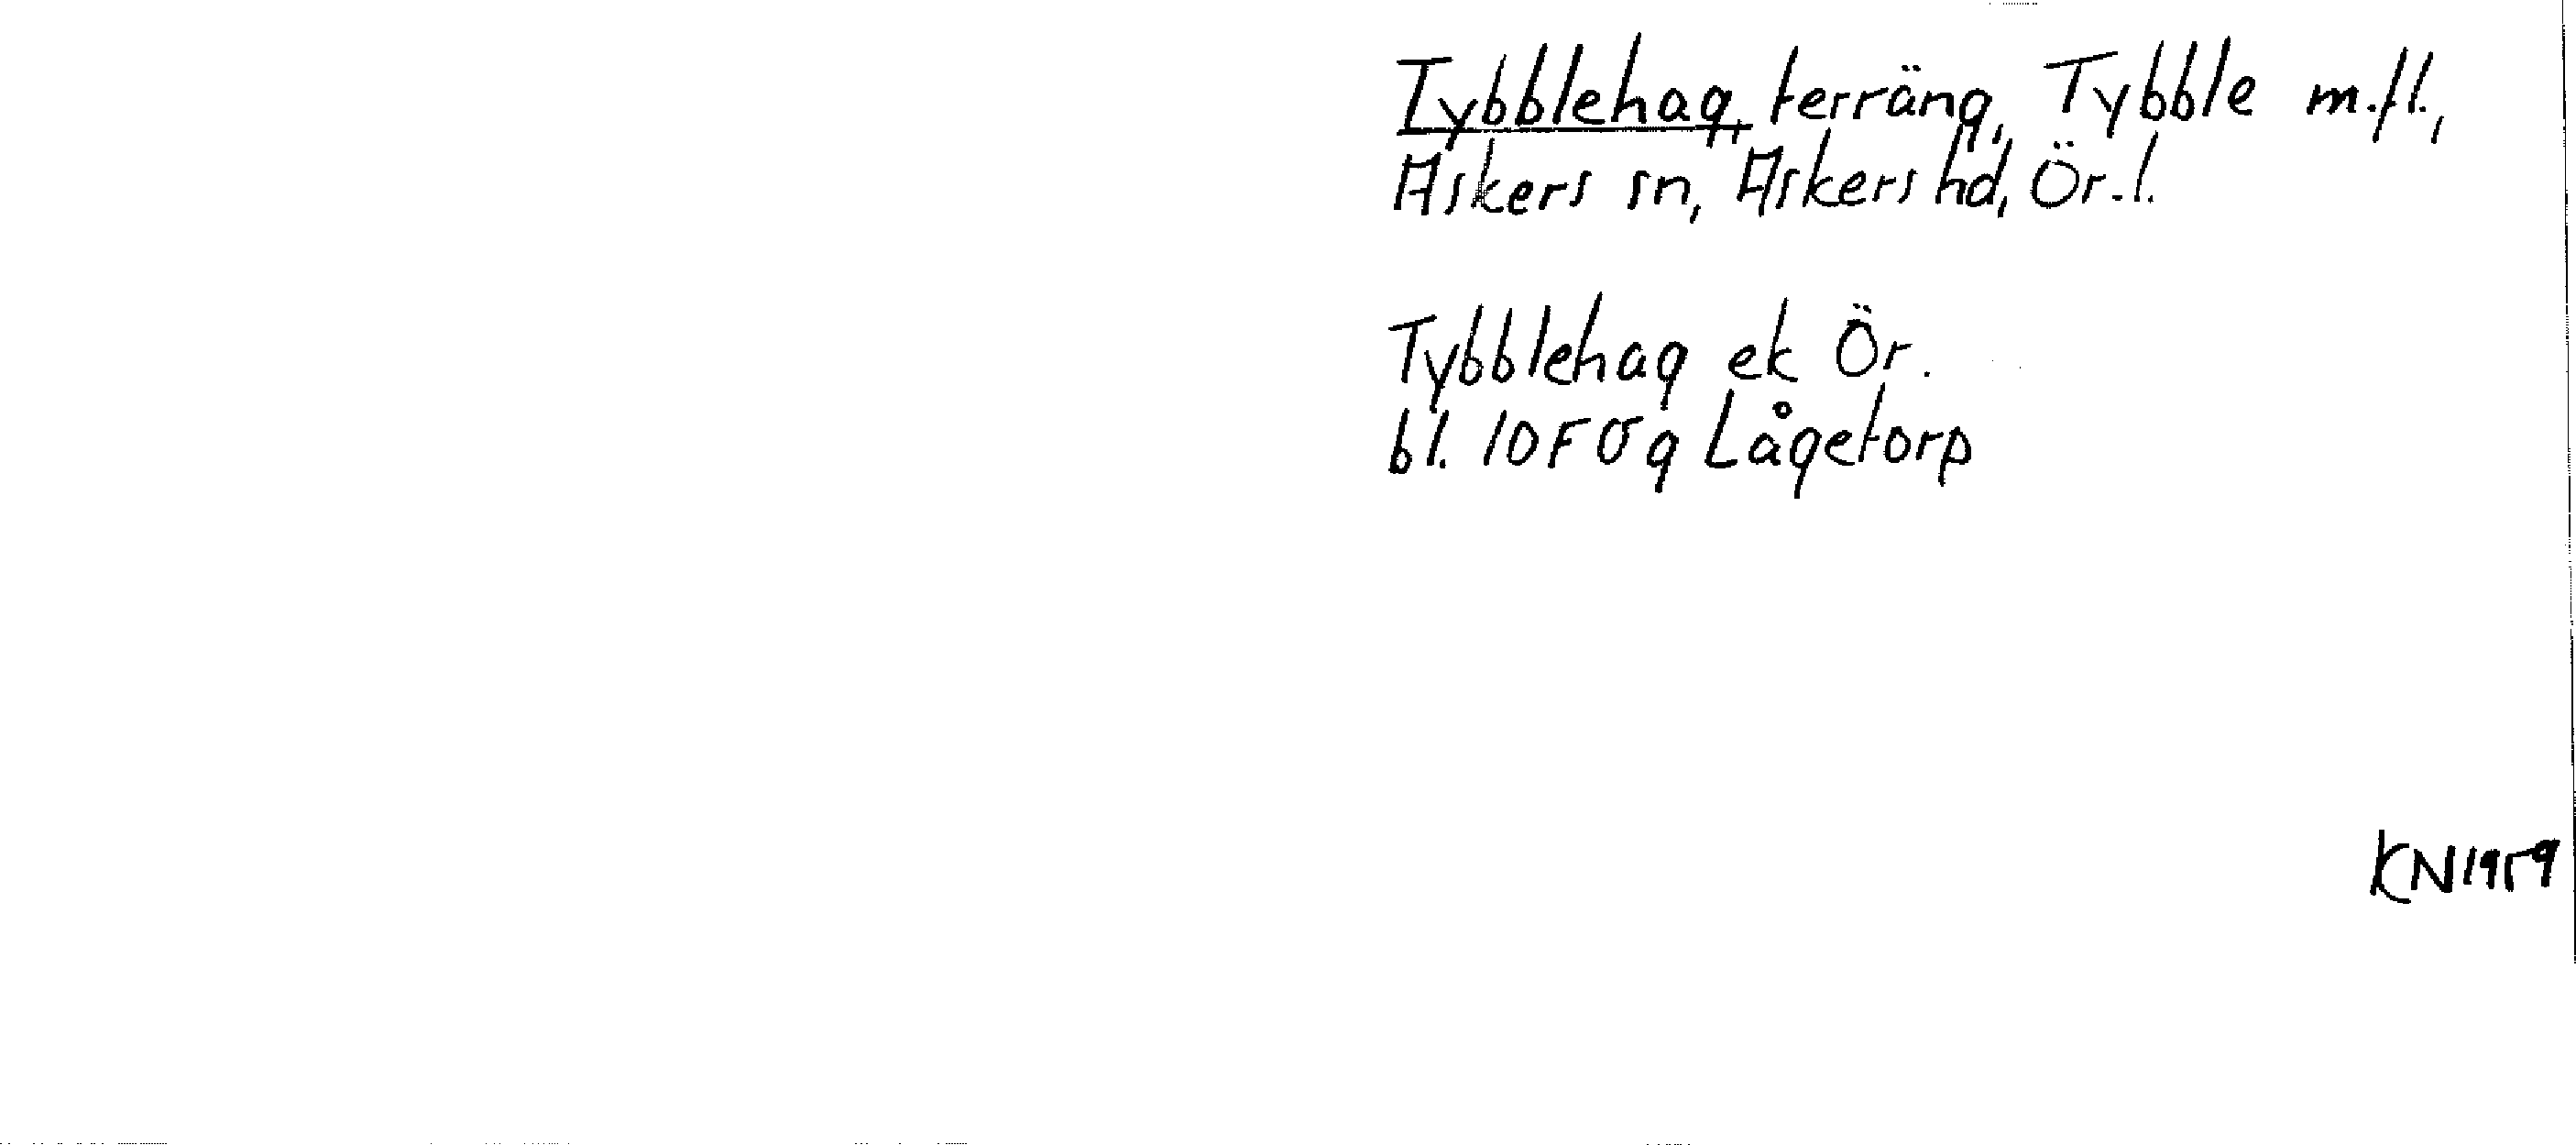 Tybblehag, terräng, Tybble m.fl.,
Askers sn, Askers hd, Ör.l.
Tybblehag ek Ör.
bl. 10F 0g Lågetorp
KN1959